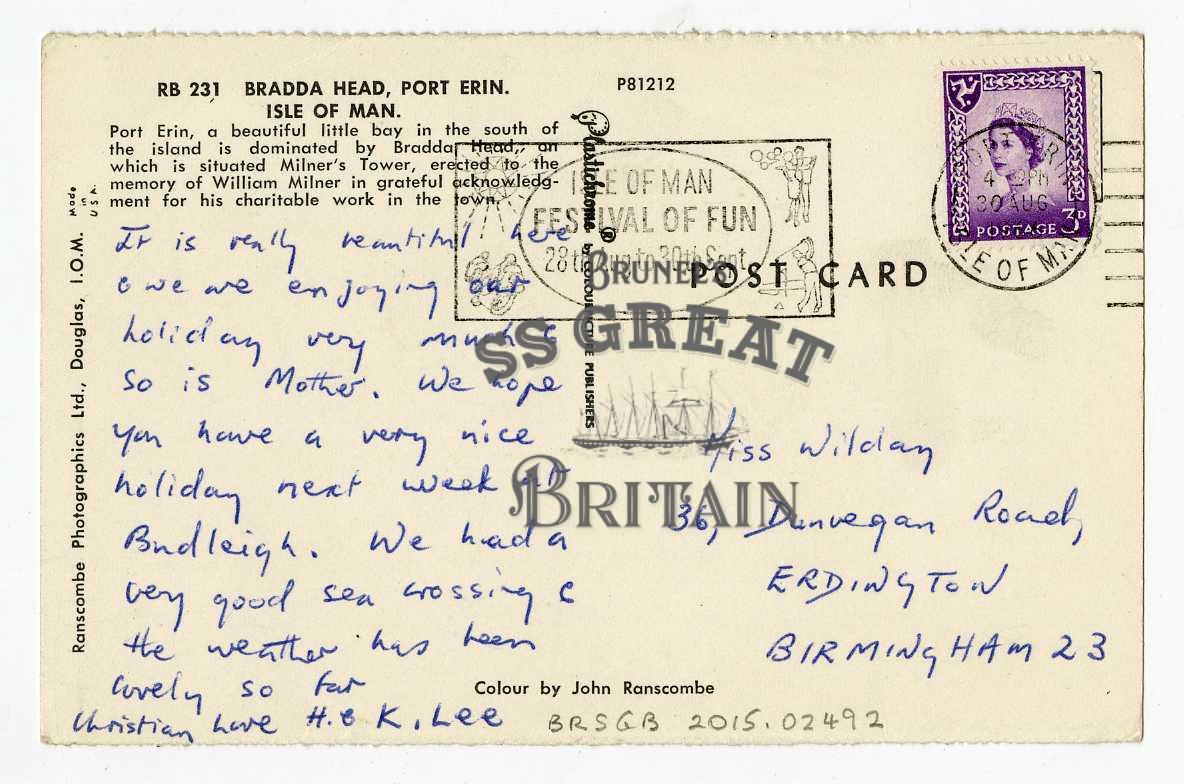 RB 231 BRADDA HEAD, PORT ERIN.
ISLE OF MAN.
Port Erin, a beautiful little bay in the south of
the island is dominated by Bradda Head, on
which is situated Milner's Tower, erected to the
memory of William Milner in grateful acknowledg-
ment for his charitable work in the town.
P81212
It is really beautiful here
& we are enjoying our
holiday very much &
so is Mother. We hope
you have a very nice
holiday next week at
Budleigh. We had a
very good sea crossing &
the weather has been
lovely so far
Christian Love H. & K. Lee
Made in USA.
Ranscombe Photographics Ltd., Douglas, I.O.M.
Plastichrome ®
by COLOURPICTURE PUBLISHERS
ISLE OF MAN
FESTIVAL OF FUN
28th Aug to 30th Sept
POST CARD
BRUNEL'S
SS GREAT
BRITAIN
3D
POSTAGE
PM
30 AUG
ISLE OF MAN
Miss Wilday
36, Dunvegan Road,
ERDINGTON
BIRMINGHAM 23
Colour by John Ranscombe
BRSGB 2015.02492